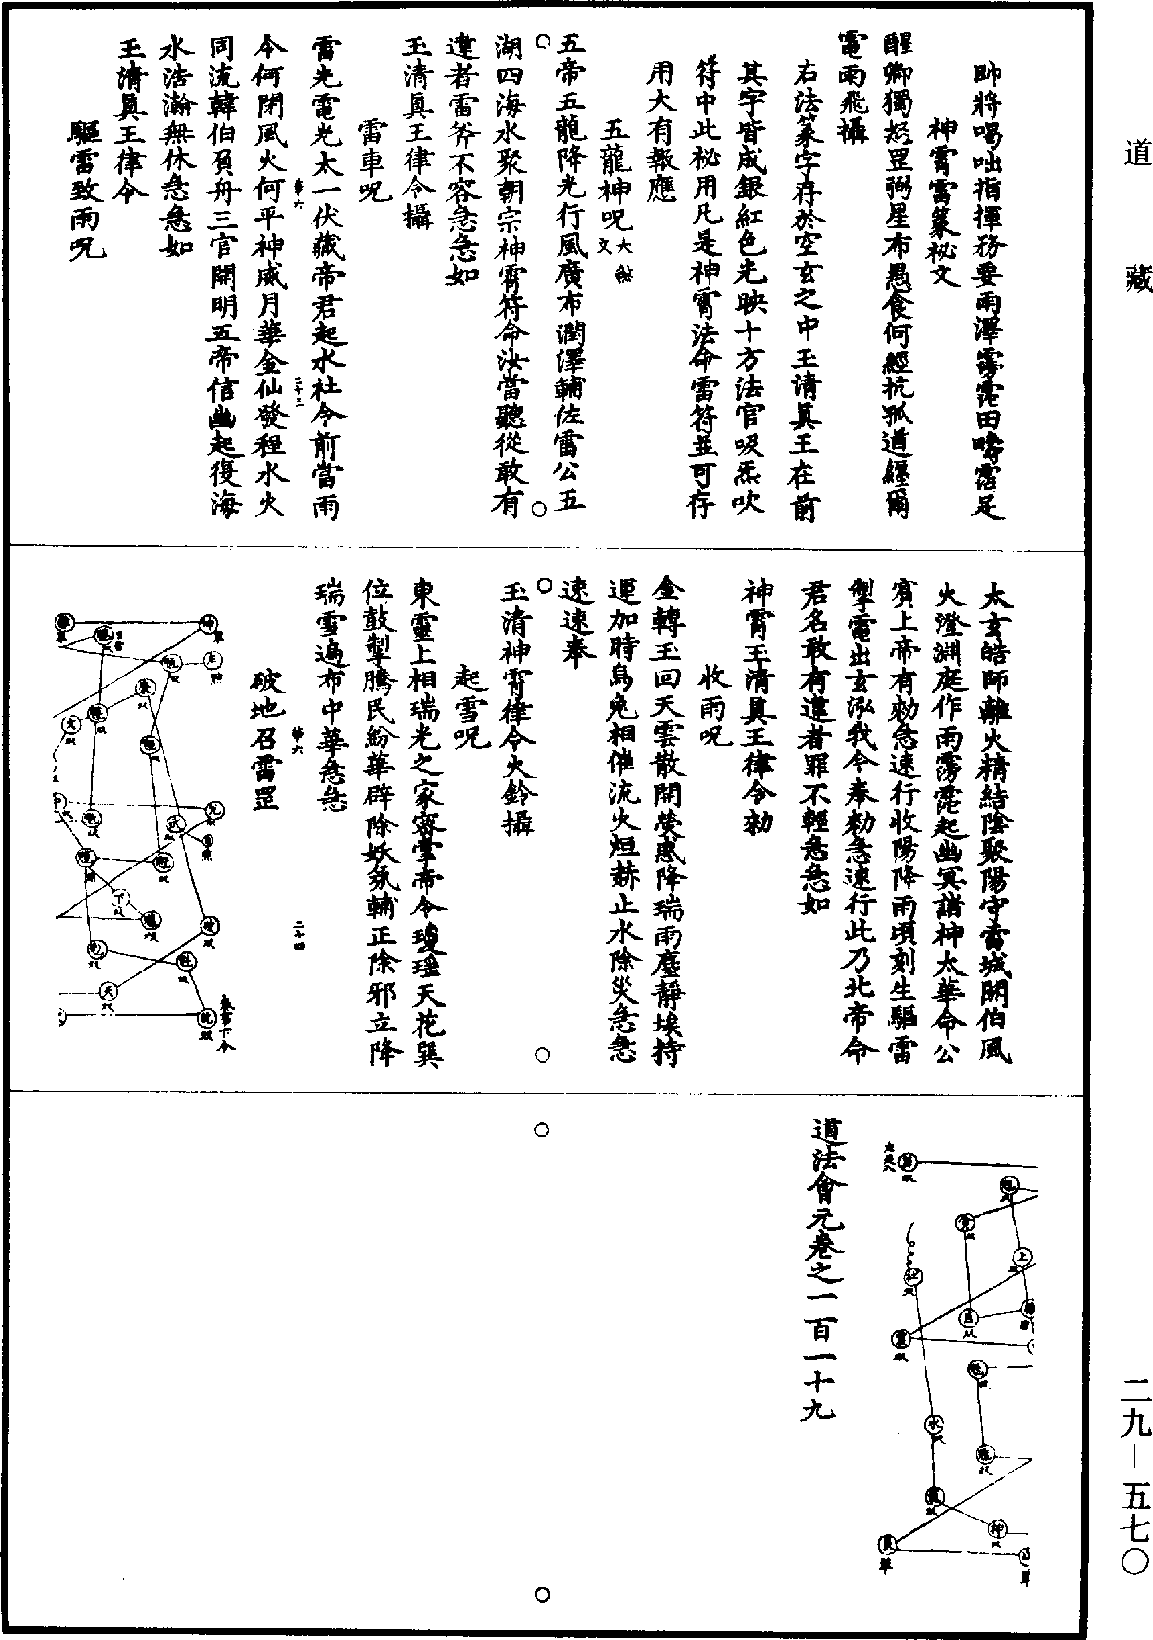 道藏
帥將喝咄指揮務要雨澤霶霔田疇霑足
神霄雷篆祕文
醒卿獨髟罡弼星布愚食何經抗孤道經爾
電雨飛攝
右法篆字存於空玄之中玉清真王在前
其字皆成銀紅色光映十方法官吸炁吹
符中此祕用凡是神霄法命雷符並可存
用大有報應
五龍神呪
五帝五龍降光行風廣布潤澤輔佐雷公五
湖四海水聚朝宗神霄符命汝當聽從敢有
違者雷斧不容急急如
玉清真王律令攝
雷車呪
雷光電光太一伏藏帝君起水社令前當雨
今何閉風火何平神威月華金仙發程水火
同流韓伯負舟三官開明五帝信幽起復海
水浩瀚無休急急如
玉清真王律令
驅雷致雨呪
太玄皓師離火精結陰聚陽守雷城關伯風
火澄淵庭作雨霶霔起幽冥諸神太華命公
賓上帝有勑急速行收陽降雨頃刻生驅雷
掣電出玄泓我今奉勑急速行此乃北帝命
君名敢有違者罪不輕急急如
神霄玉清真王律令勑
收雨呪
金轉玉回天雲散開熒惑降瑞雨塵靜埃持
運加時烏兔相催流火烜赫止水除災急急
速速奉
玉清神霄律令火鈴攝
起雪呪
東靈上相瑞光之家密掌帝令瓊瑶天花巽
位鼓掣騰民紛華辟除妖氛輔正除邪立降
瑞雪遍布中華急急
破地召雷罡
道法會元卷之一百一十九
二九—五七〇